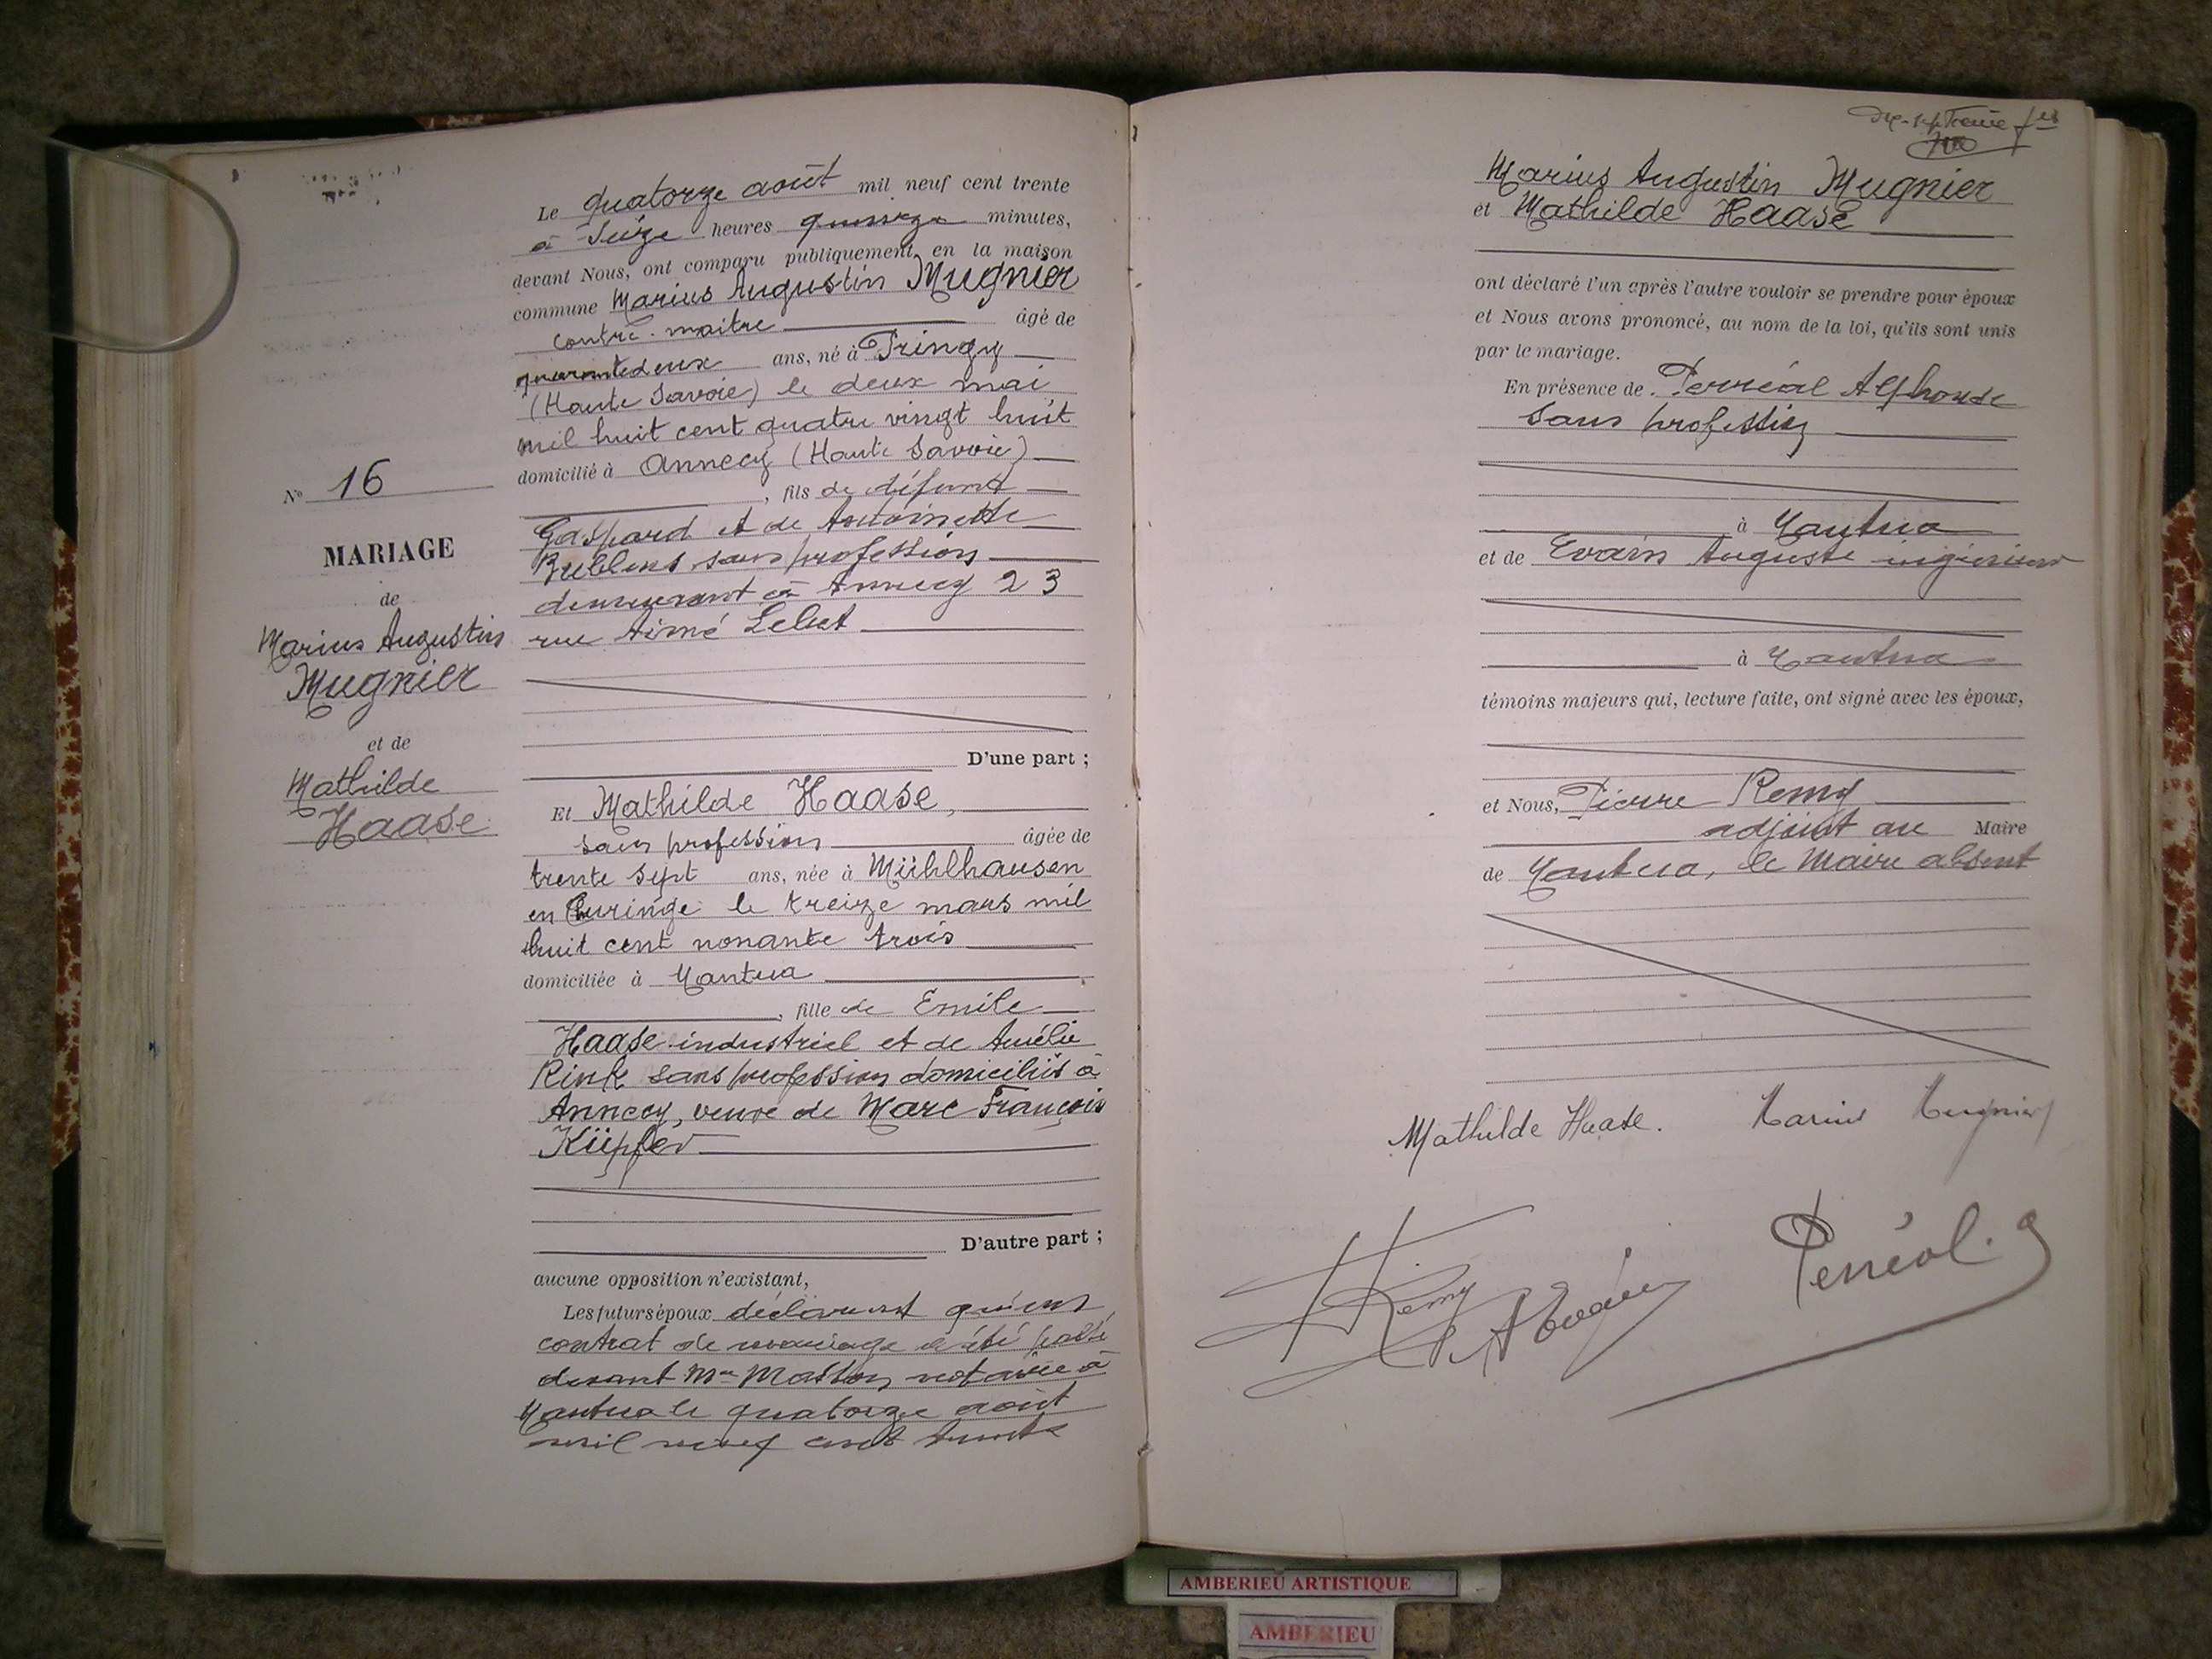 Le quatorze août mil neuf cent trente
à Seize heures quinze minutes,
devant Nous, ont comparu publiquement en la maison
commune Marius Augustin Mugnier
contre-maitre âgé de
quarantedeux ans, né à Pringy
(Haute Savoie) le deux mai
mil huit cent quatre vingt huit
domicilié à Annecy (Haute Savoie)
, fils de défunt
Gaspard et de Antoinette
sans profession
demeurant à Annecy 23
rue Aimé
D'une part ;
Et Mathilde Haase,
sans profession âgée de
trente sept ans, née à Mühlhausen
en Thuringe le treize mars mil
huit cent nonante trois
domiciliée à Nantua
, fille de Emile
Haase industriel et de Amélie
Rink sans profession domiciliés à
Annecy, veuve de Marc François
Küpfer
D'autre part ;
aucune opposition n'existant,
Les futurs époux déclarent qu'un
contrat de mariage a été passé
devant Me notaire à
Nantua le quatorze août
mil neuf cent trente
No 16
MARIAGE
de
Marius Augustin
Mugnier
et de
Mathilde
Haase
Marius Augustin Mugnier
et Mathilde Haase
ont déclaré l'un après l'autre vouloir se prendre pour époux
et Nous avons prononcé, au nom de la loi, qu'ils sont unis
par le mariage.
En présence de Perréal Alphonse
sans profession
à Nantua
et de Evain Auguste ingénieur
à Nantua
témoins majeurs qui, lecture faite, ont signé avec les époux,
et Nous, Pierre Remy
adjoint au Maire
de Nantua, le Maire absent
Mathilde Haase. Marius Mugnier
Remy
A Evain
Perréal.
AMBERIEU ARTISTIQUE
AMBERIEU